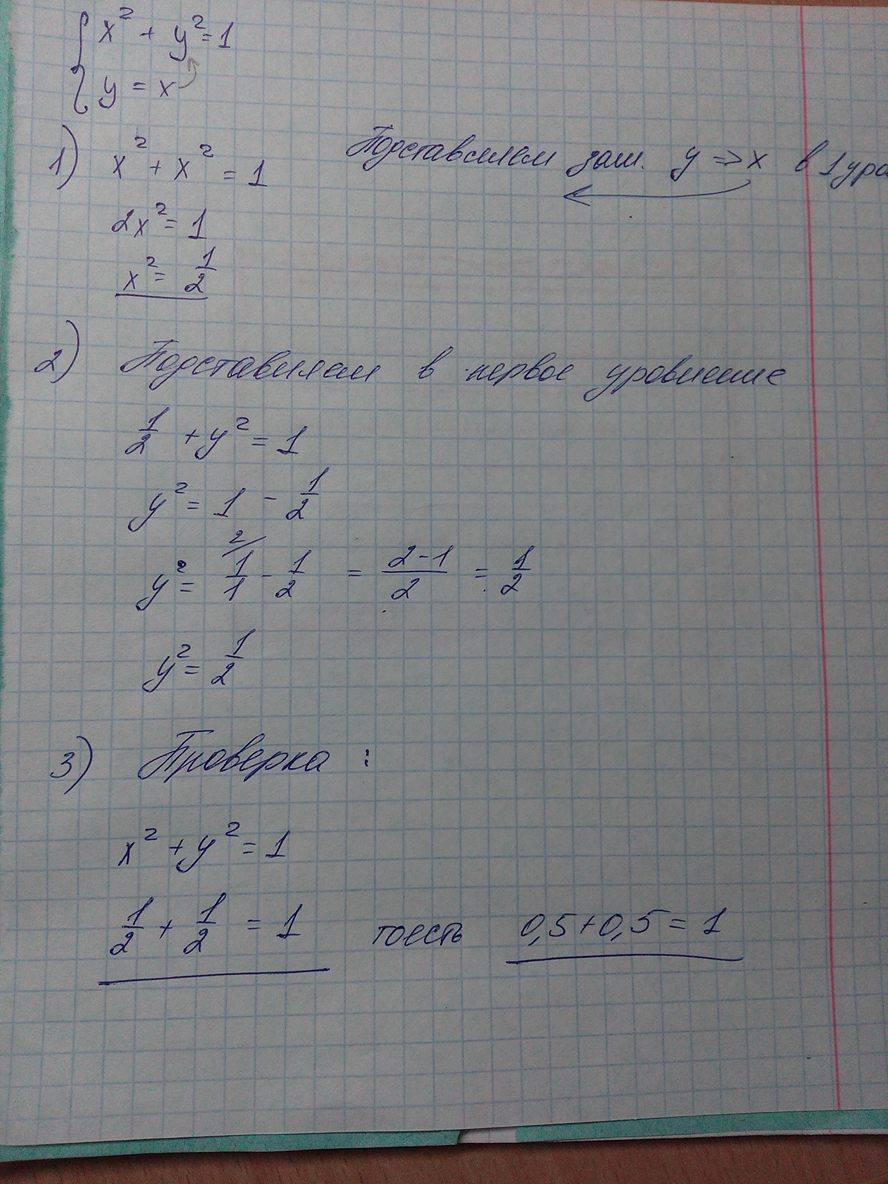 x² + y² = 1
y = x
1) x² + x² = 1 Подставляем зам. y => x в 1 ура
2x² = 1
x² = 1/2
2) Подставляем в первое уровнение
1/2 + y² = 1
y² = 1 - 1/2
y² = 2/ 1/1 - 1/2 = 2-1/2 = 1/2
y² = 1/2
3) Проверка :
x² + y² = 1
1/2 + 1/2 = 1 тоесть 0,5+0,5 = 1